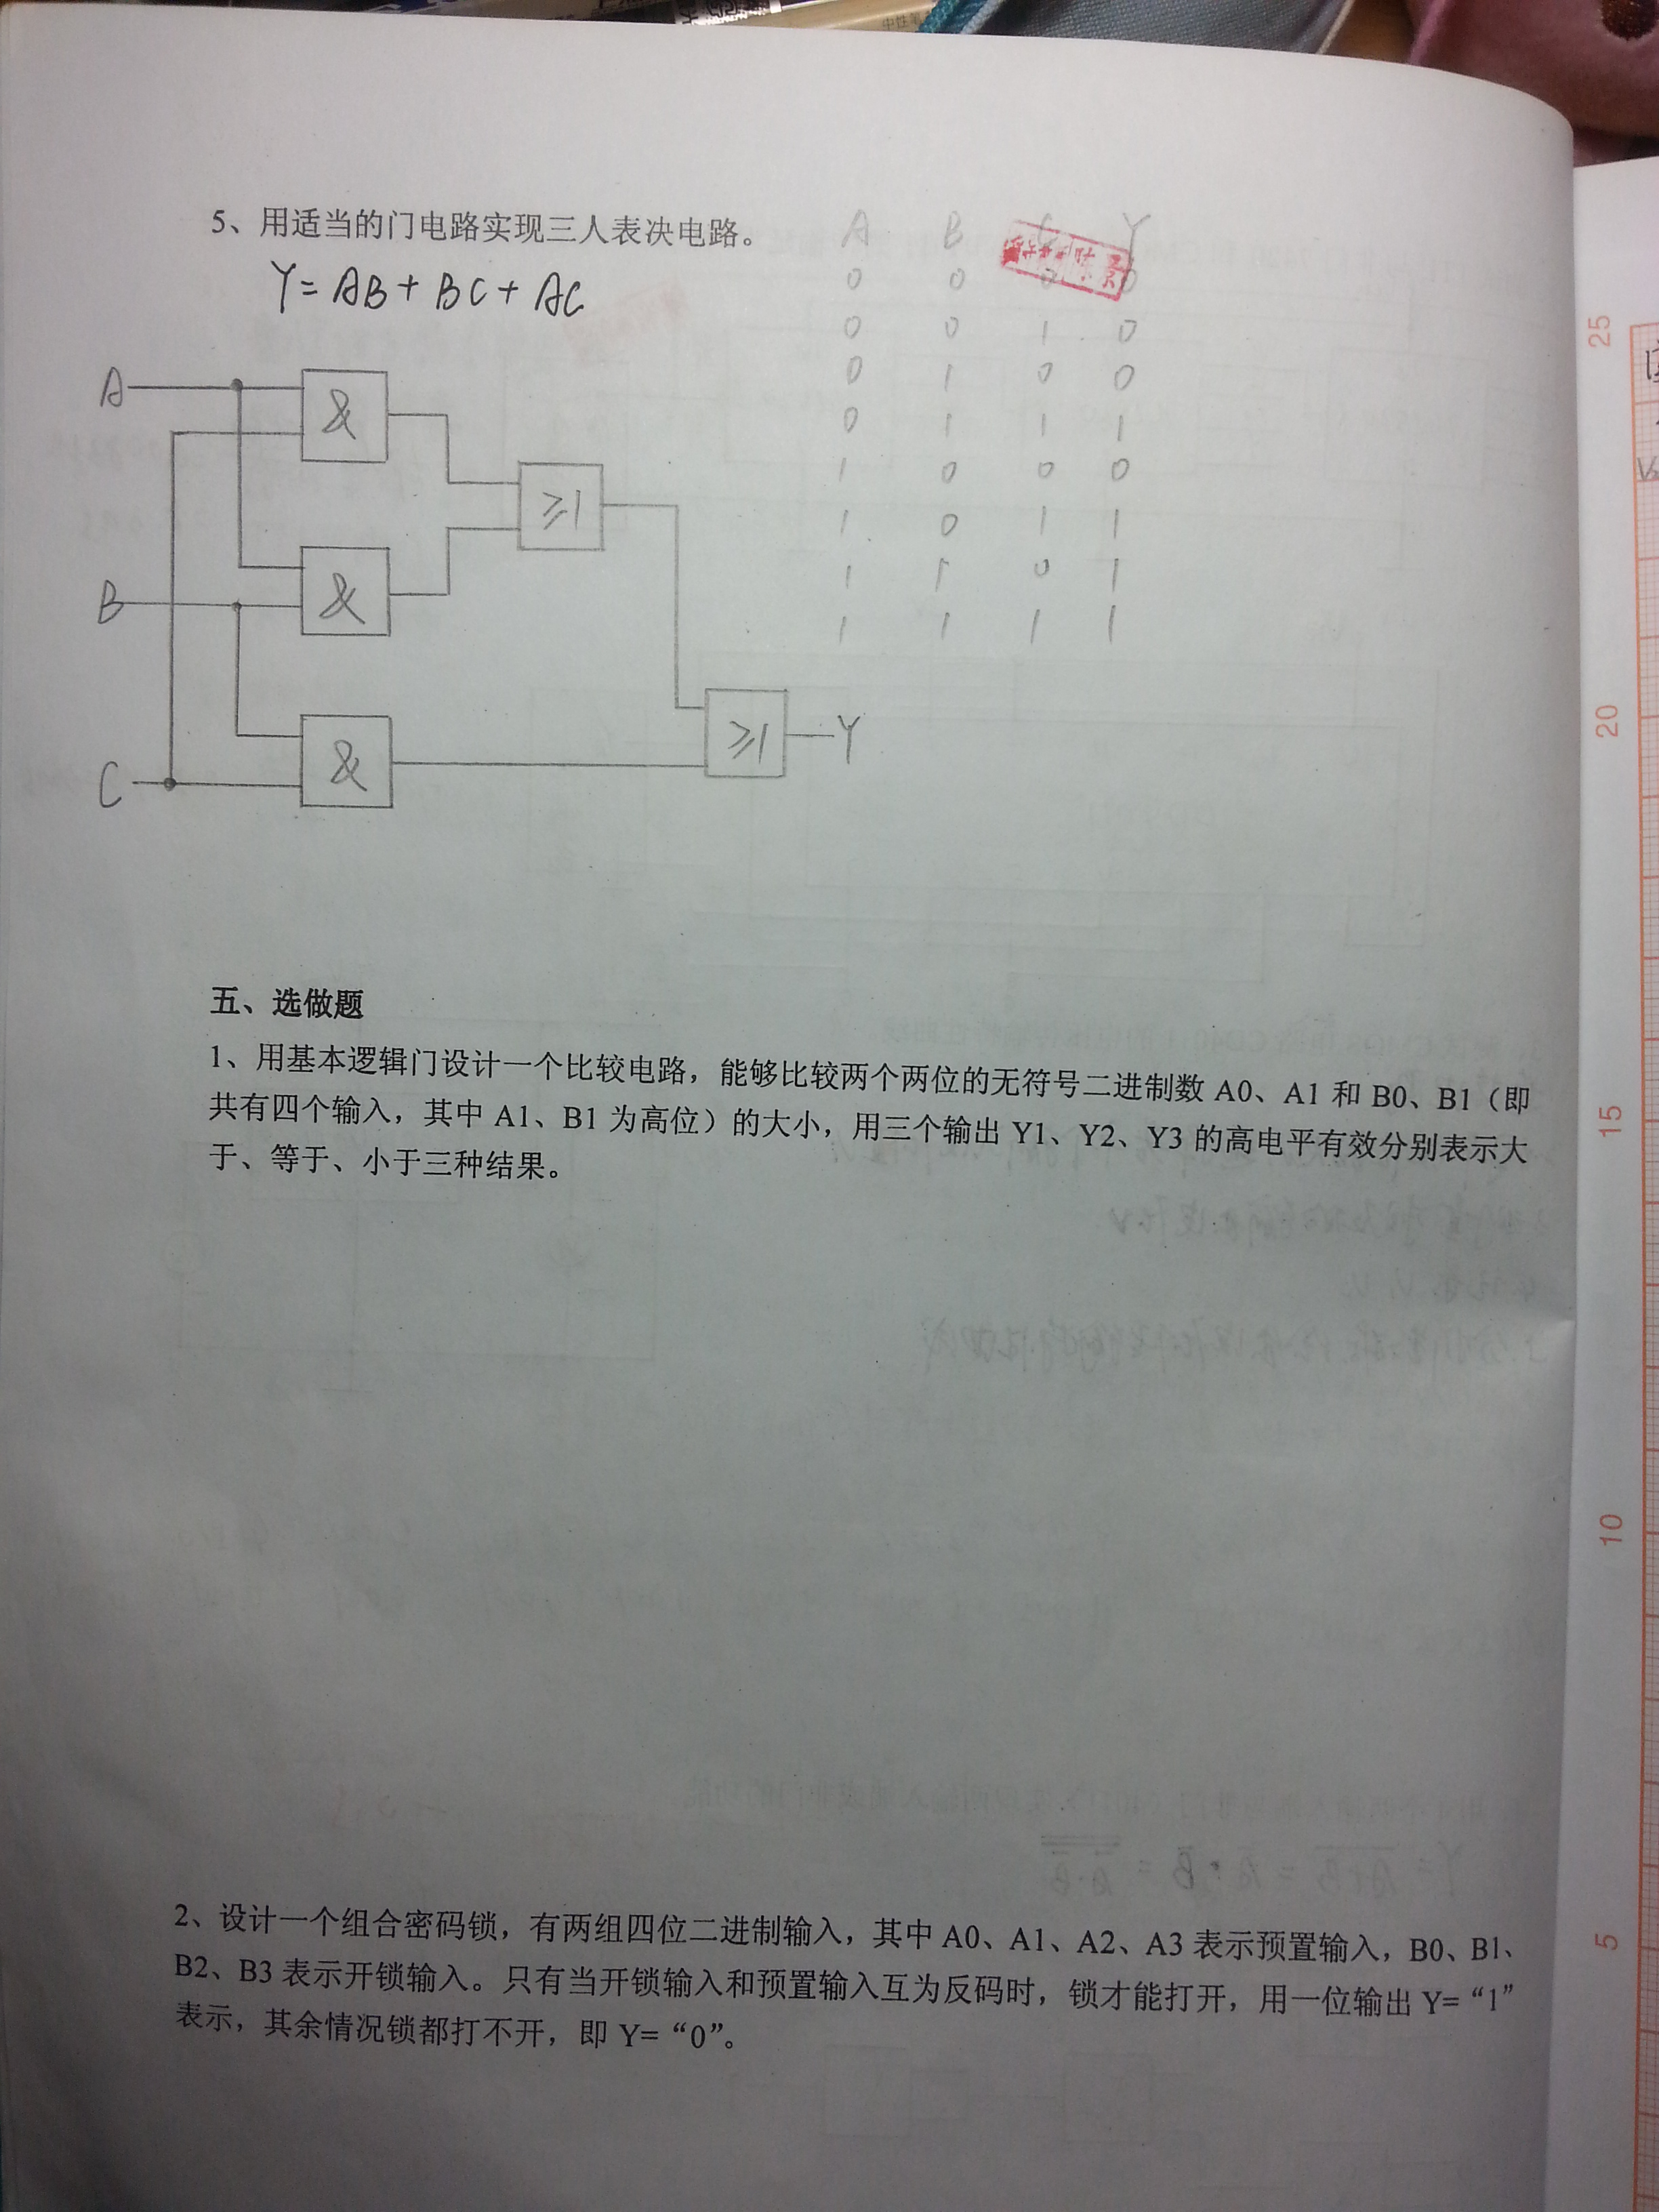 中性笔
5、用适当的门电路实现三人表决电路。
Y=AB+BC+AC
A B C Y
0 0 0 0
0 0 1 0
0 1 0 0
0 1 1 1
1 0 0 0
1 0 1 1
1 1 0 1
1 1 1 1
A
&
≥1
B
&
≥1
Y
C
&
五、选做题
1、用基本逻辑门设计一个比较电路，能够比较两个两位的无符号二进制数 A0、A1 和 B0、B1（即
共有四个输入，其中 A1、B1 为高位）的大小，用三个输出 Y1、Y2、Y3 的高电平有效分别表示大
于、等于、小于三种结果。
2、设计一个组合密码锁，有两组四位二进制输入，其中 A0、A1、A2、A3 表示预置输入，B0、B1、
B2、B3 表示开锁输入。只有当开锁输入和预置输入互为反码时，锁才能打开，用一位输出 Y= “1”
表示，其余情况锁都打不开，即 Y= “0”。
25
20
15
10
5